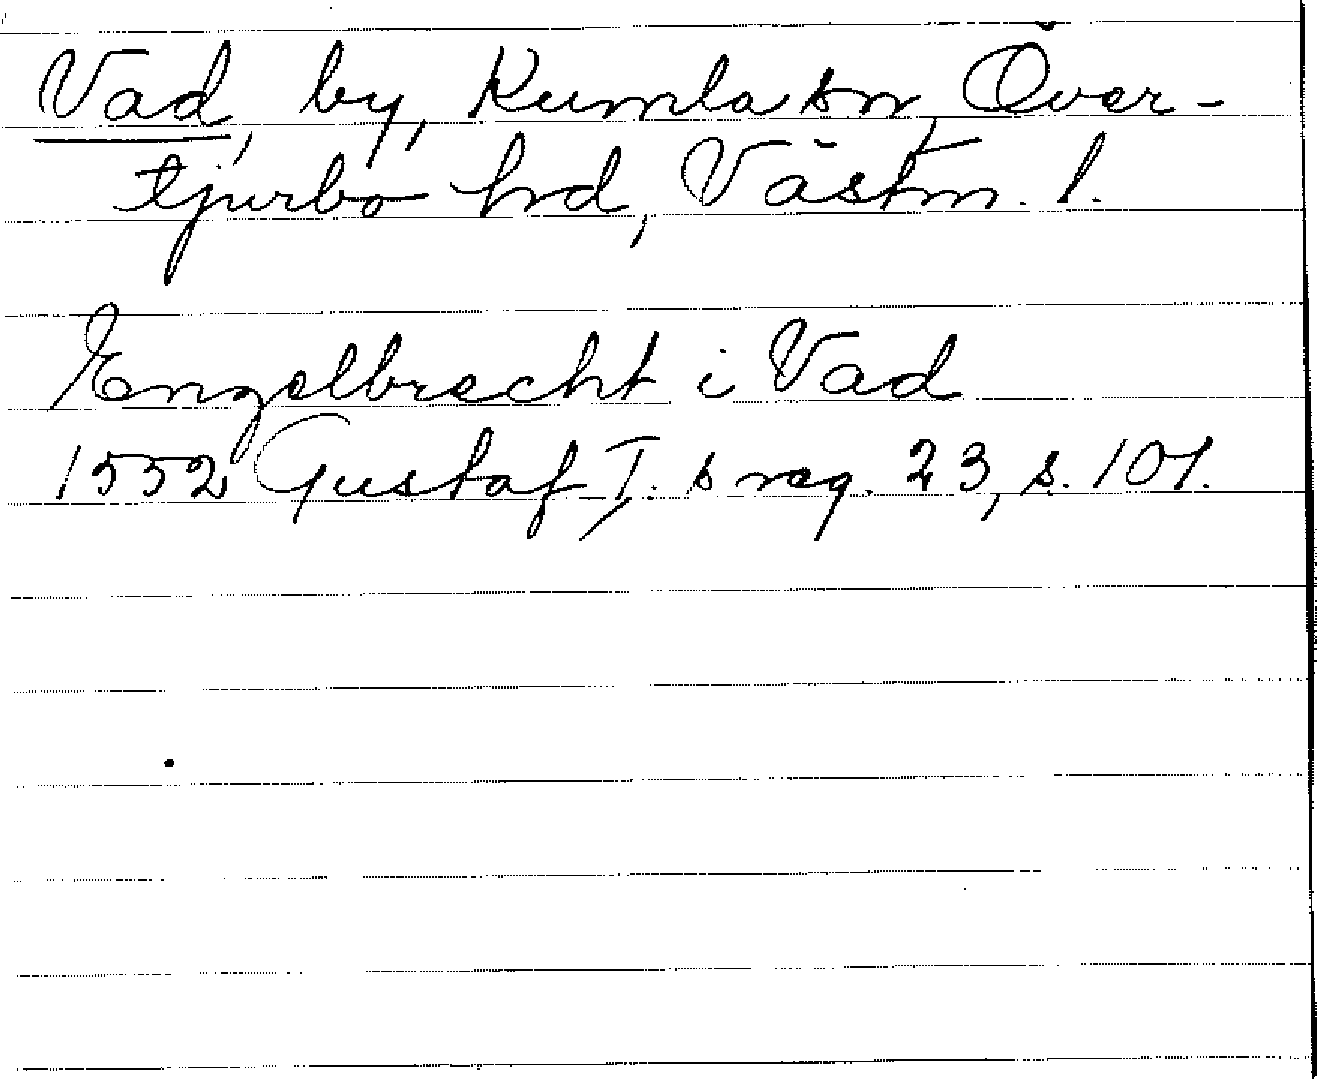 Vad, by, Kumla sn, Över-
tjurbo hrd, Västm. l.
Engelbrecht i Vad
1552 Gustaf I. s reg. 23, s. 101.